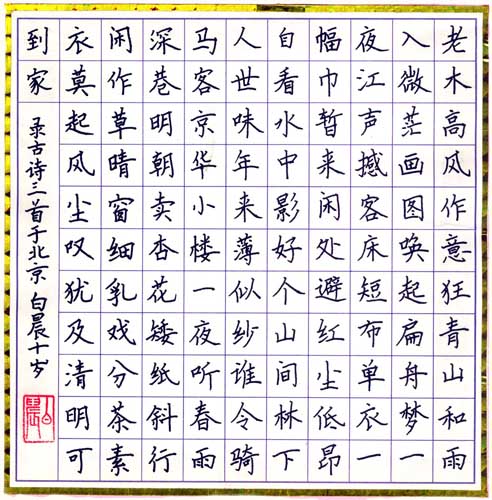 老木高风作意狂青山和雨
入微茫画图唤起扁舟梦一
夜江声撼客床短布单衣一
幅巾暂来闲处避红尘低昂
自看水中影好个山间林下
人世味年来薄似纱谁令骑
马客京华小楼一夜听春雨
深巷明朝卖杏花矮纸斜行
闲作草晴窗细乳戏分茶素
衣莫起风尘叹犹及清明可
到家
录古诗三首于北京 白晨十岁
白晨